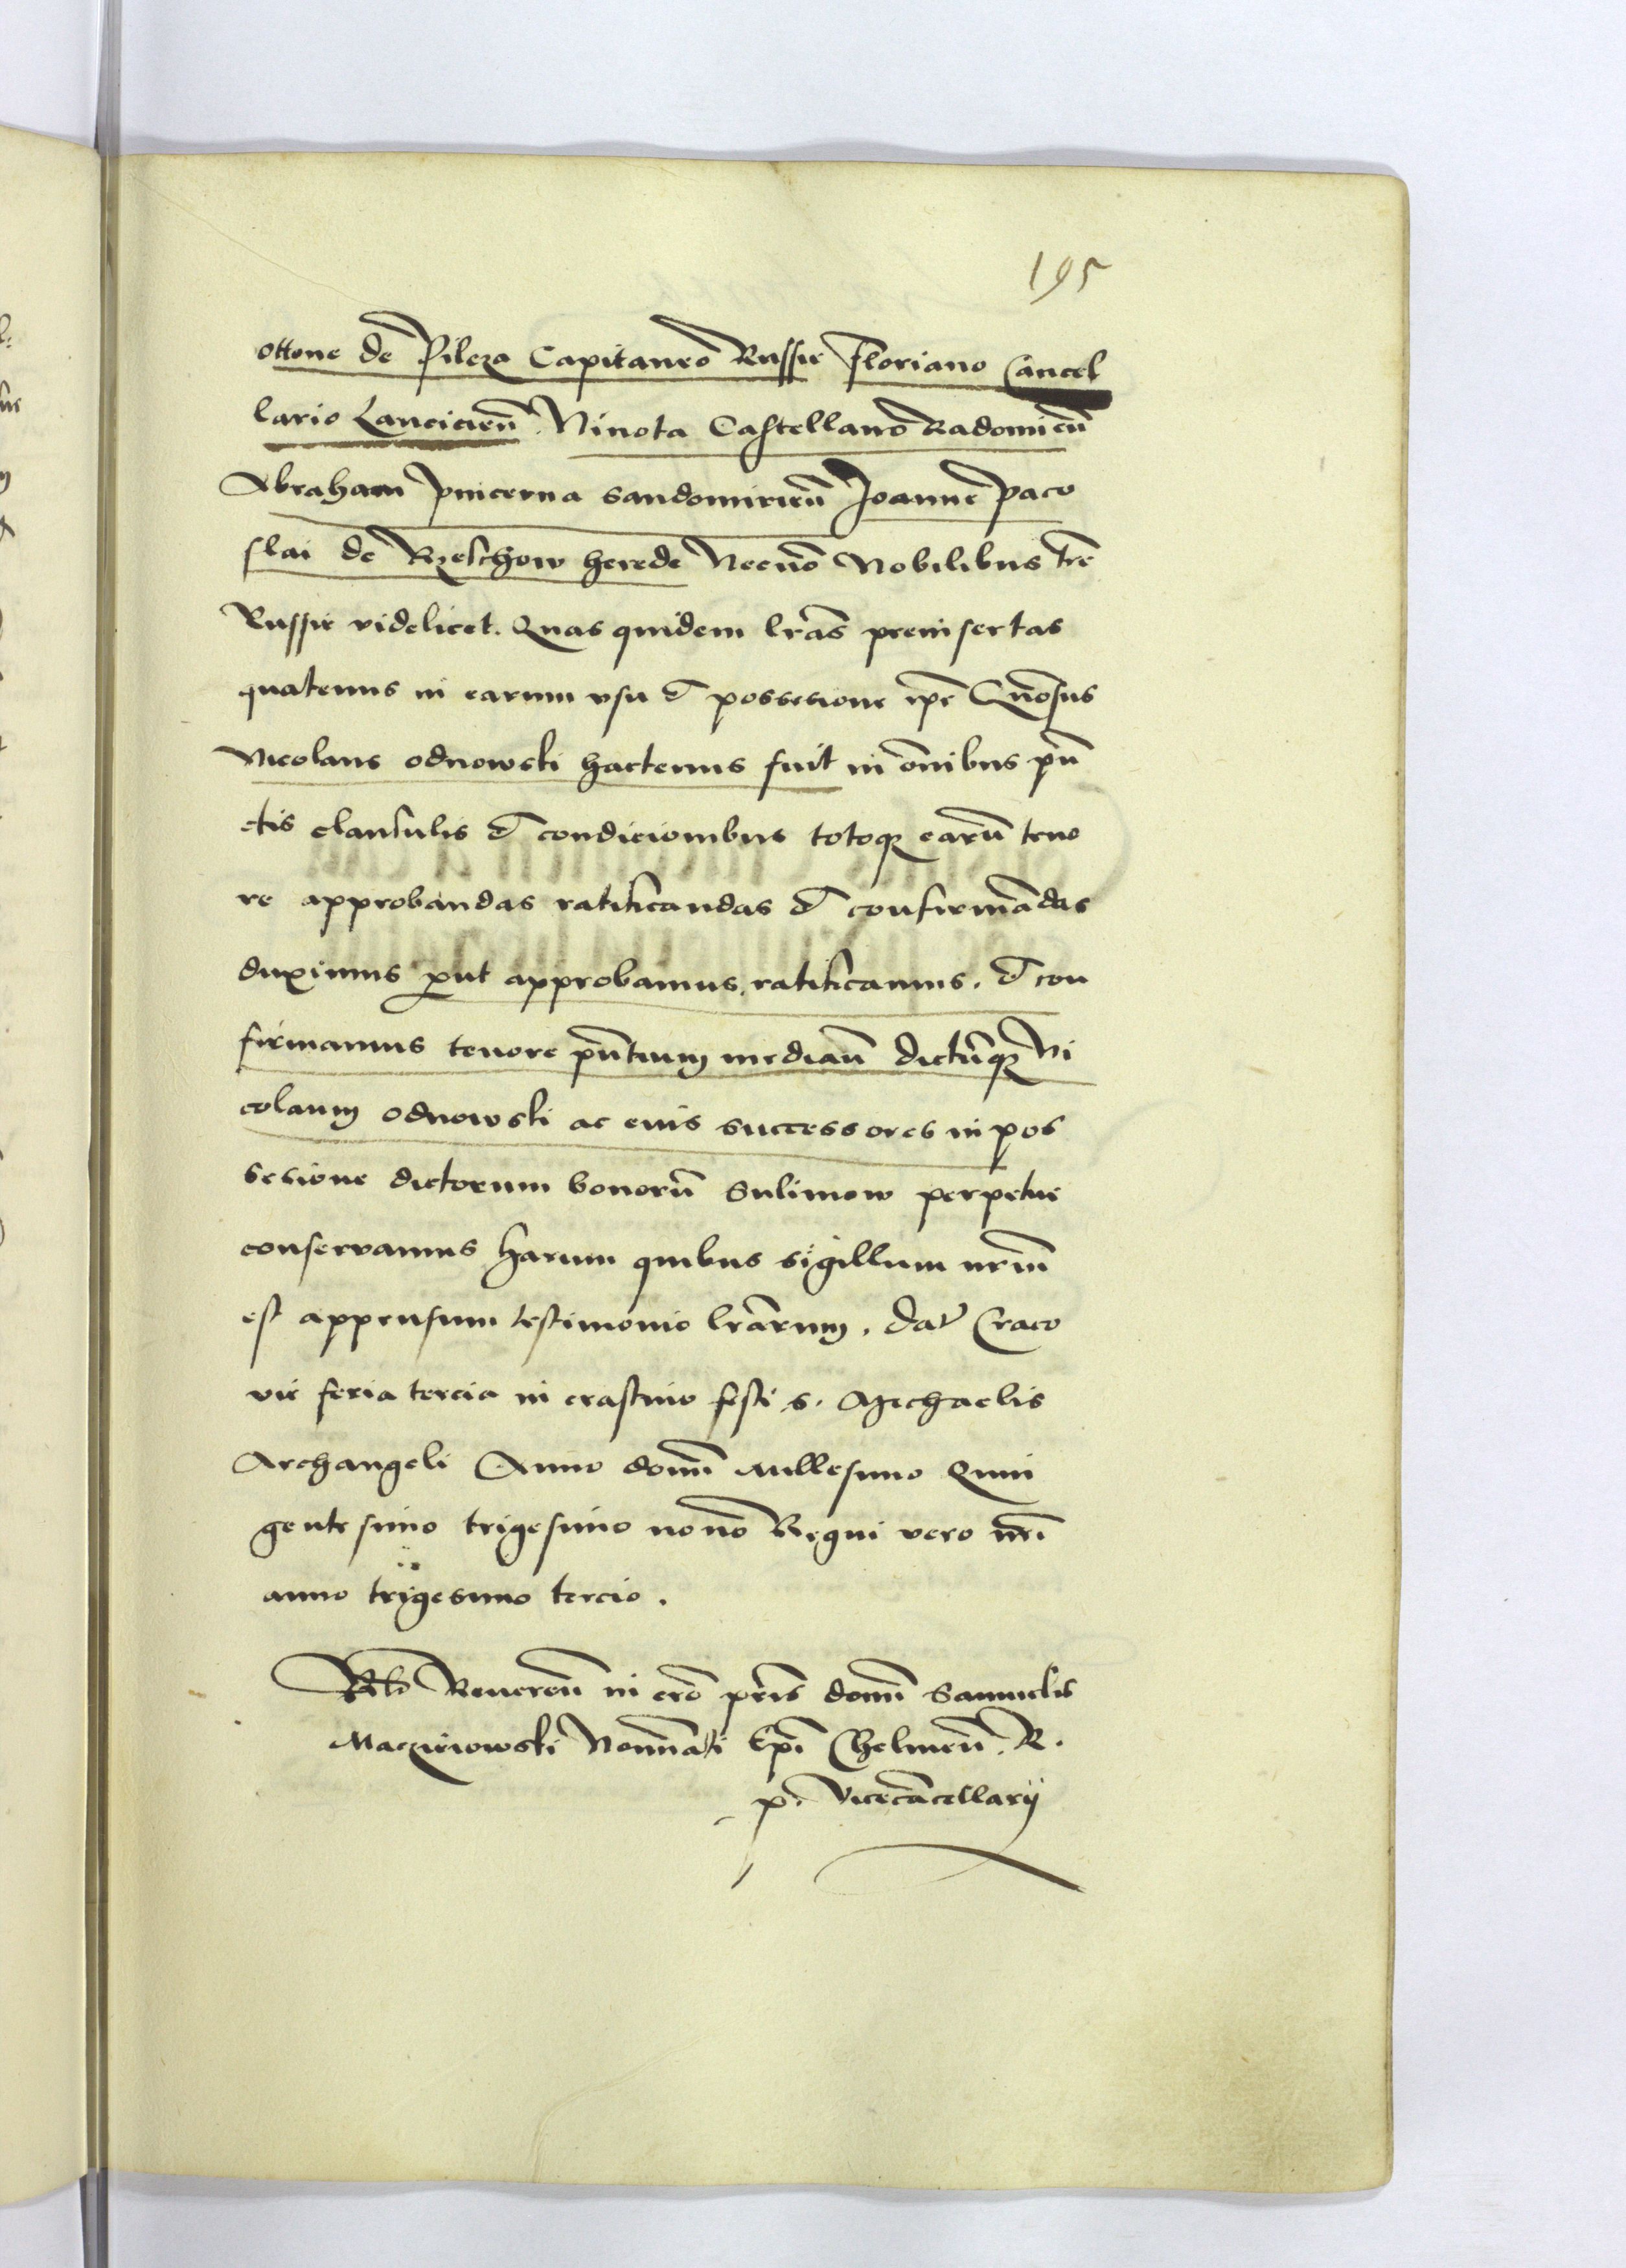 195
ottone de Pilcza Capitaneo Russie Floriano Cancel
lario Lancicieñ. Ninota Castellano Radomieñ
Abraham Pincerna sandomirieñ Joanne Paco
slai de Rzeschow herede Necnō Nobilibus tr̄e
Russie videlicet. Quas quidem lr̄as preinsertas
quatenus in earum vsu & possesione ip̄e Gn̄osus
Nicolaus odnowski hactenus fuit in om̄ibus pun̄
ctis clausulis & condicionibus totoqꝫ earū teno
re approbandas ratificandas & confirmādas
duximus ꝓut approbamus, ratificamus. & con
firmamus tenore pn̄tium mediañ dictūqꝫ Ni
colaum odnowski ac eius successores in pos
sesione dictorum bonorū Sulimow perpetue
conservamus harum quibus sigillum nr̄m
est appensum testimonio lr̄arum. Dat̄ Craco
vie feria tercia in crastino festi s. Michaelis
Archangeli Anno domī Millesimo Quin
gentesimo trigesimo nono Regni vero nr̄i
anno trigesimo tercio.
Rel̄o Reuereñ in cr̄o pr̄is domī Samuelis
Maczieiowski Nomīati Ep̄i Chelmeñ. R.
p. Vicecācellarij